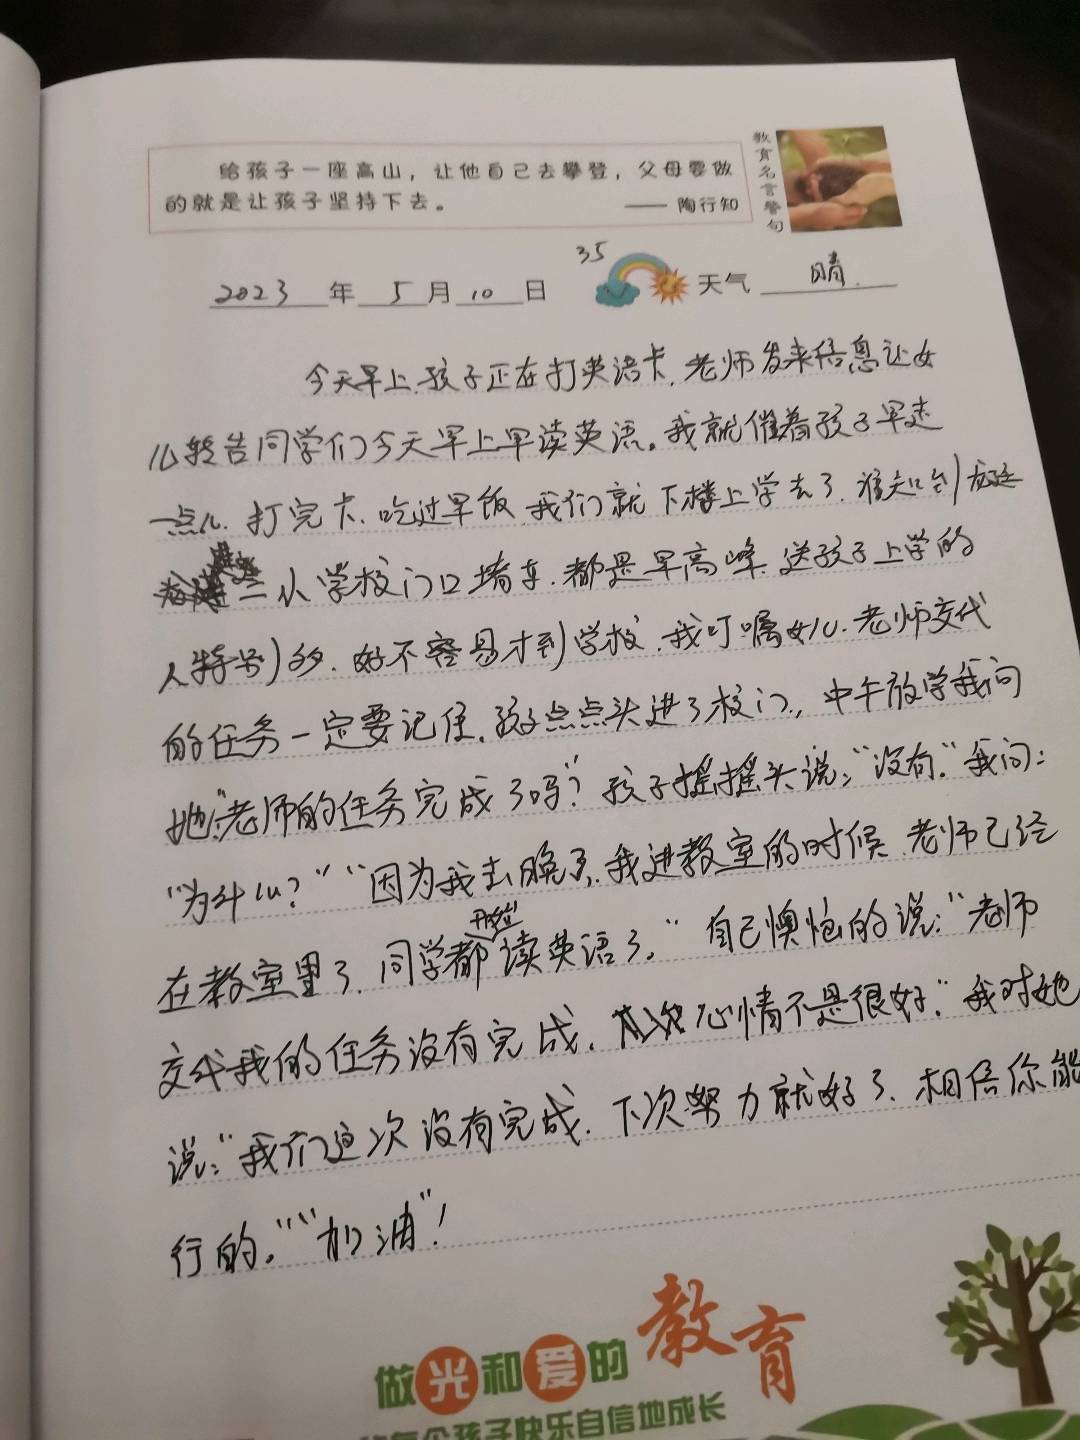 给孩子一座高山，让他自己去攀登，父母要做
的就是让孩子坚持下去。
—— 陶行知
教育名言警句
35
2023年5月10日 天气 晴.
今天早上.孩子正在打英语卡.老师发来信息让女
儿转告同学们今天早上早读英语。我就催着孩子早走
一点儿.打完卡.吃过早饭.我们就下楼上学去了.谁知到
二小学校门口堵车.都是早高峰.送孩子上学的
人特别多.好不容易才到学校.我叮嘱女儿.老师交代
的任务一定要记住.孩子点点头进了校门.，中午放学我问
她:"老师的任务完成了吗?"孩子摇摇头说:"没有."我问:
"为什么?""因为我去晚了.我进教室的时候.老师已经
在教室里了.同学都开始读英语了."自己懊恼的说:"老师
交代我的任务没有完成.心情不是很好."我对她
说:"我们这次没有完成.下次努力就好了.相信你能
行的。""加油"!
做光和爱的教育
每个孩子快乐自信地成长